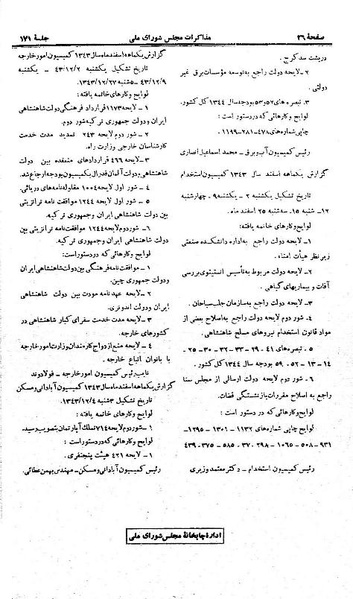 صفحهٔ ۲۶
مذاکرات مجلس شورای ملی
جلسهٔ ۱۷۱
دریشت سد کرج.
۲- لایحه دولت راجع به توسعه مؤسسات برق غیر
دولتی.
۳. تبصره‌های ۵۲ و ۵۳ بودجه سال ۱۳۴۴ کل کشور.
لوایح و کارهائی که در دستور است:
چاپی شماره‌های ۴۷۸-۲۸۱-۱۱۹۹
رئیس کمیسیون آب و برق - محمد اسماعیل انصاری
گزارش یکماهه اسفند سال ۱۳۴۳ کمیسیون استخدام
تاریخ تشکیل یکشنبه ۲ - یکشنبه ۹ - چهارشنبه
۱۲- شنبه ۱۵- سه‌شنبه ۲۵ اسفند ماه.
لوایح و کارهای خاتمه یافته:
۱- لایحه دولت راجع به اداره دانشکده صنعتی
زیر نظر هیأت امناء.
۲- لایحه دولت مربوط به تأسیس انستیتوی بررسی
آفات و بیماریهای گیاهی.
۳- لایحه دولت راجع به سازمان جلب سیاحان.
۴- شور دوم لایحه دولت راجع به اصلاح بعضی از
مواد قانون استخدام نیروهای مسلح شاهنشاهی.
۵- تبصره‌های ۴۱-۲۹-۳۳-۳۲-۳۰-۲۵-
۱۴-۱۳-۵۲-۵۹ بودجه سال ۱۳۴۴ کل کشور.
۶- شور دوم لایحه دولت ارسالی از مجلس سنا
راجع به اصلاح مقررات بازنشستگی قضات.
لوایح و کارهائی که در دستور است:
لوایح چاپی شماره‌های ۱۱۳۲-۱۳۰۱-۱۲۹۵-
۹۳۱-۵۰۸-۱۰۶۵-۲۹۸-۳۷۰-۵۸۵-۴۳۹-۳۷۵
رئیس کمیسیون استخدام - دکتر معتمد وزیری
گزارش یکماهه اسفند ماه سال ۱۳۴۳ کمیسیون امور خارجه
تاریخ تشکیل یکشنبه ۴۳/۱۲/۲ - یکشنبه
۴۳/۱۲/۹
لوایح و کارهای خاتمه یافته:
۱- لایحه ۱۱۷۳ قرارداد فرهنگی دولت شاهنشاهی
ایران و دولت جمهوری ترکیه شور دوم.
۲- شور دوم لایحه ۲۴۳ تمدید مدت خدمت
کارشناسان خارجی وزارت راه.
۳- لایحه ۴۶۶ قراردادهای منعقده بین دولت
شاهنشاهی و دولت آلمان فدرال به کمیسیون بودجه ارجاع شد.
۴- شور اول لایحه ۱۰۰۴ مقاوله‌نامه‌های دریائی.
۵- شور اول لایحه ۱۲۴۴ موافقت‌نامه ترانزیتی
بین دولت شاهنشاهی ایران و جمهوری ترکیه.
۶- شور دوم لایحه ۱۲۴۴ موافقت‌نامه ترانزیتی بین
دولت شاهنشاهی ایران و جمهوری ترکیه.
لوایح و کارهائی که در دستور است:
۱- موافقت‌نامه فرهنگی بین دولت شاهنشاهی ایران
و دولت جمهوری چین.
۲- لایحه عهدنامه مودت بین دولت شاهنشاهی
ایران و دولت اندونزی.
۳- لایحه مدت خدمت سفرای کبار شاهنشاهی در
کشورهای خارجه.
۴- لایحه منع ازدواج کارمندان وزارت امور خارجه
با بانوان اتباع خارجه.
نایب رئیس کمیسیون امور خارجه - فولادوند
گزارش یکماهه اسفند ماه سال ۱۳۴۳ کمیسیون آبادانی و مسکن
تاریخ تشکیل ۳ شنبه ۴۳/۱۲/۴
لوایح و کارهای خاتمه یافته:
۱- شور دوم لایحه ۷۱۴ تملک آپارتمان بتصویب رسید.
لوایح و کارهائی که در دستور است:
۱- لایحه ۴۲۱ هیئت پنج‌نفری.
رئیس کمیسیون آبادانی و مسکن - مهندس بهمن عطائی.
ادارهٔ چاپخانهٔ مجلس شورای ملی